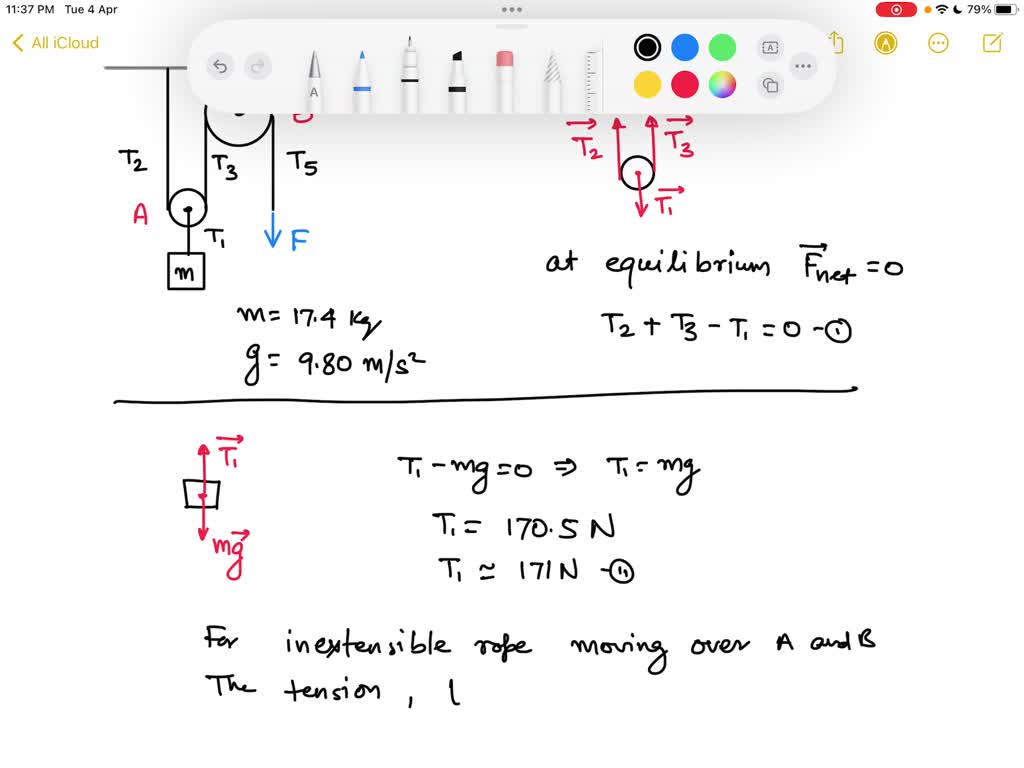 11:37 PM Tue 4 Apr
79%
All iCloud
A
A
T₂
T₃
T₅
A
T₁
F
m
T₂
T₃
T₁
m = 17.4 kg
g = 9.80 m/s²
at equilibrium F⃗net = 0
T₂ + T₃ - T₁ = 0 -①
T⃗₁
mg⃗
T₁ - mg = 0 ⇒ T₁ = mg
T₁ = 170.5 N
T₁ ≃ 171 N -⑪
For inextensible rope moving over A and B
The tension ,